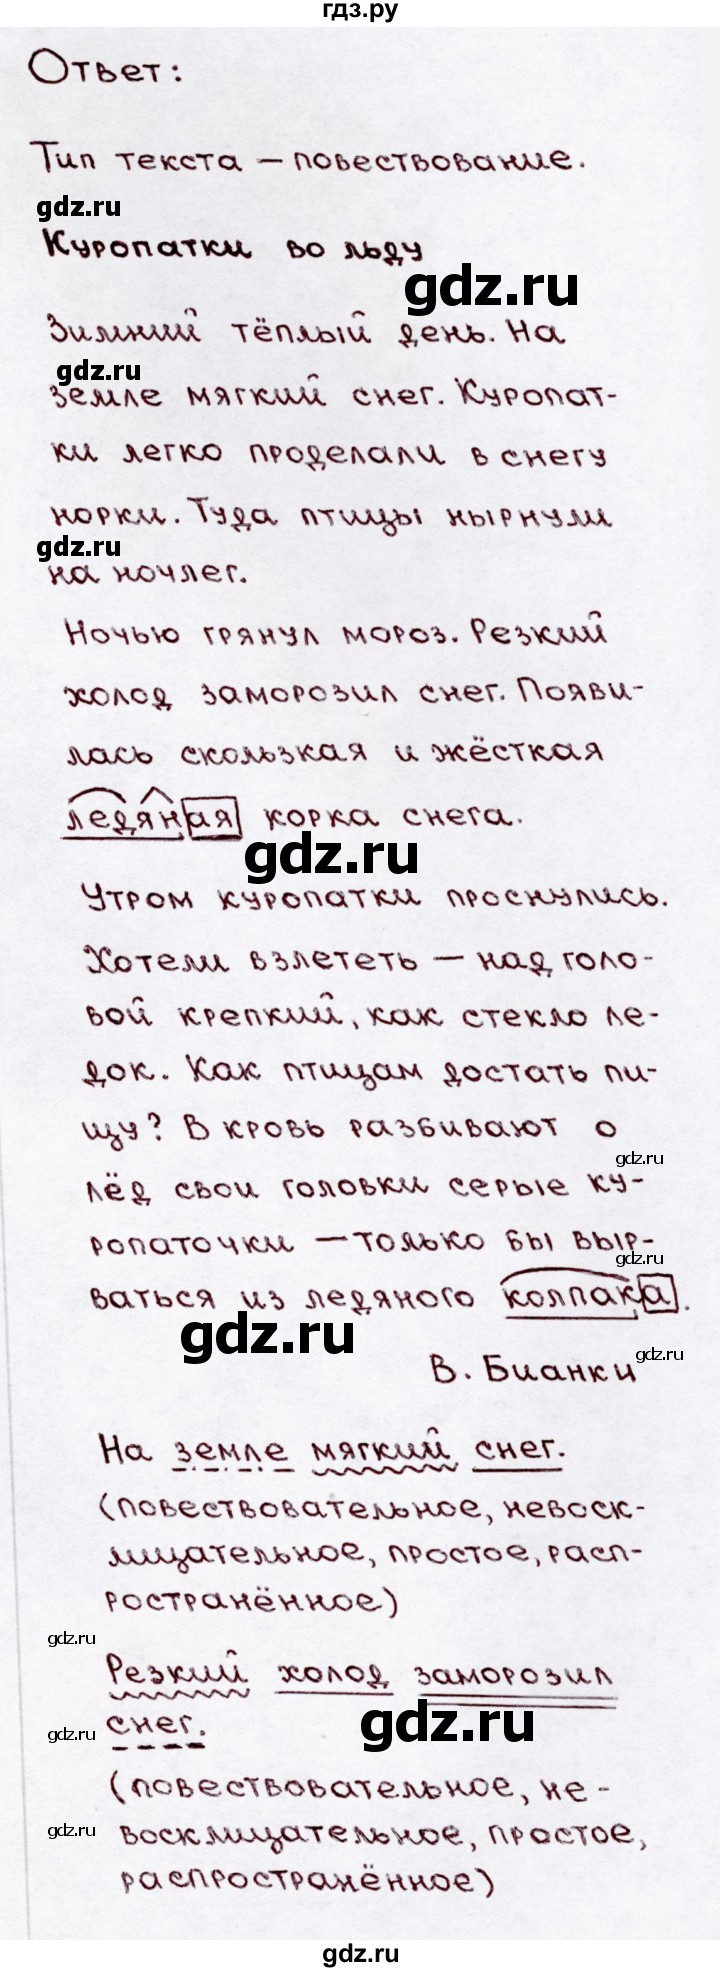 гдз.ру
Ответ:
Тип текста – повествование.
gdz.ru
Куропатки во льду
gdz.ru
Зимний тёплый день. На
gdz.ru
земле мягкий снег. Куропат-
ки легко проделали в снегу
норки. Туда птицы нырнули
gdz.ru
на ночлег.
Ночью грянул мороз. Резкий
холод заморозил снег. Появи-
лась скользкая и жёсткая
ледяная корка снега.
gdz.ru
Утром куропатки проснулись.
Хотели взлететь – над голо-
вой крепкий, как стекло ле-
док. Как птицам достать пи-
щу? В кровь разбивают о
gdz.ru
лёд свои головки серые ку-
ропаточки – только бы выр-
gdz.ru
ваться из ледяного колпака.
gdz.ru
gdz.ru
В. Бианки
На земле мягкий снег.
(повествовательное, невоск-
лицательное, простое, расп-
ространённое)
gdz.ru
Резкий холод заморозил
gdz.ru
снег.
gdz.ru
(повествовательное, не-
gdz.ru
восклицательное, простое,
распространённое)
gdz.ru